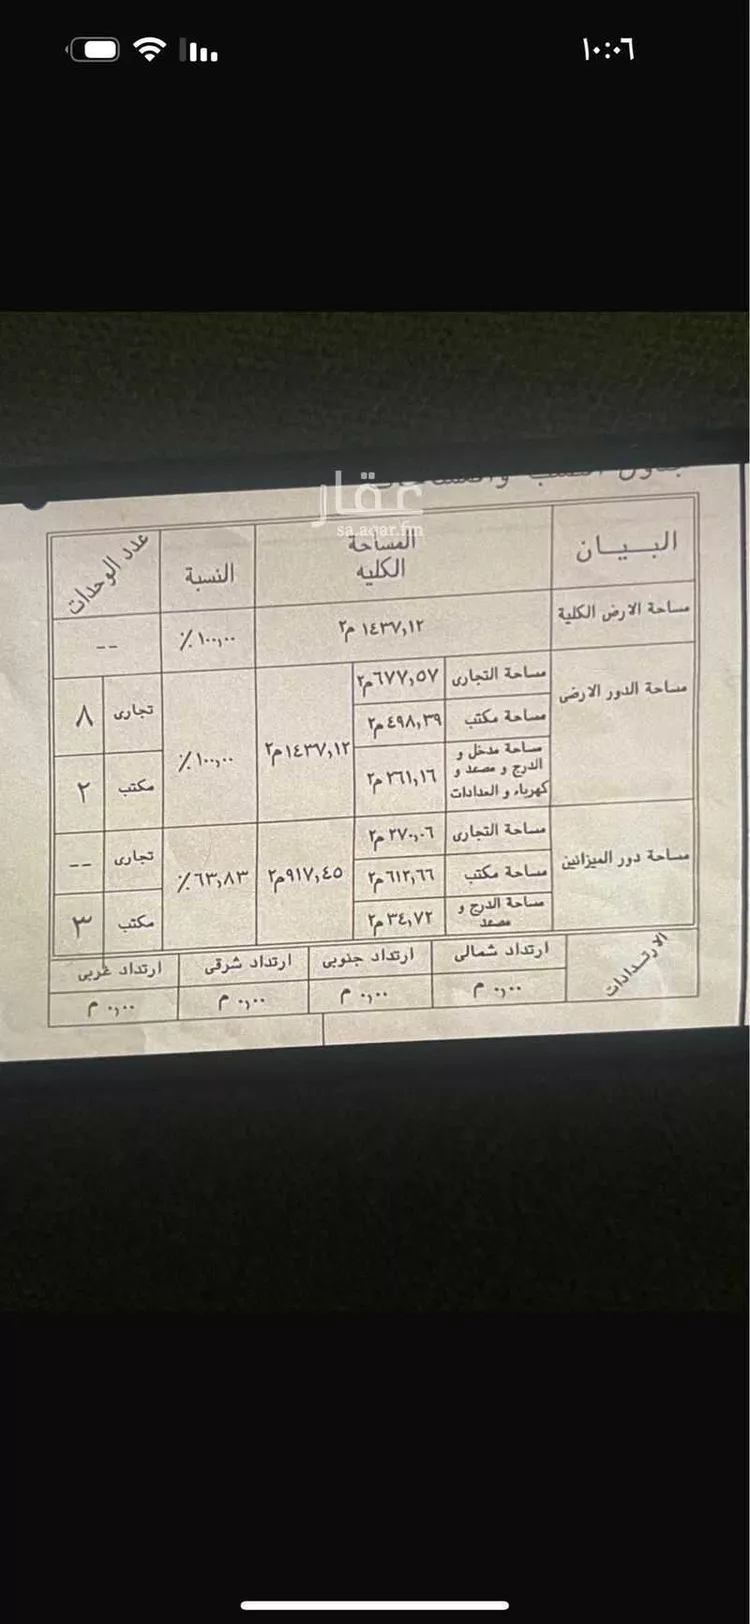 ١٠:٠٦
جدول النسب والمساحات
عقار
sa.aqar.fm
البـيـــان
المساحة الكليه
النسبة
عدد الوحدات
مساحة الارض الكلية
١٤٣٧,١٢ م٢
١٠٠,٠٠ ٪
--
مساحة الدور الارضى
مساحة التجارى
٦٧٧,٥٧م٢
مساحة مكتب
٤٩٨,٣٩م٢
مساحة مدخل و
الدرج و مصعد و
كهرباء و العدادات
٢٦١,١٦ م٢
١٤٣٧,١٢م٢
١٠٠,٠٠ ٪
تجارى
٨
مكتب
٢
مساحة دور الميزانين
مساحة التجارى
٢٧٠,٠٦ م٢
مساحة مكتب
٦١٢,٦٦ م٢
مساحة الدرج و
مصعد
٣٤,٧٢ م٢
٩١٧,٤٥م٢
٦٣,٨٣ ٪
تجارى
--
مكتب
٣
الارتدادات
ارتداد شمالى
ارتداد جنوبى
ارتداد شرقى
ارتداد غربى
٠,٠٠ م
٠,٠٠ م
٠,٠٠ م
٠,٠٠ م